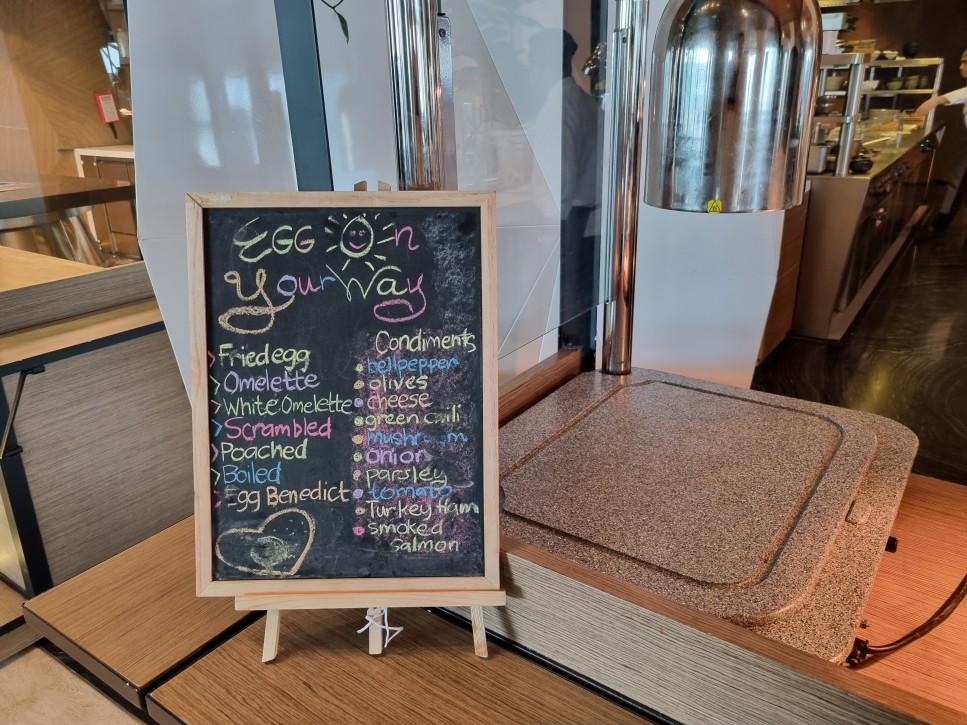 Egg On
Your Way
Fried egg
Omelette
White Omelette
Scrambled
Poached
Boiled
Egg Benedict
Condiments
bellpepper
olives
cheese
green chili
mushroom
onion
parsley
tomato
Turkey Ham
smoked
Salmon